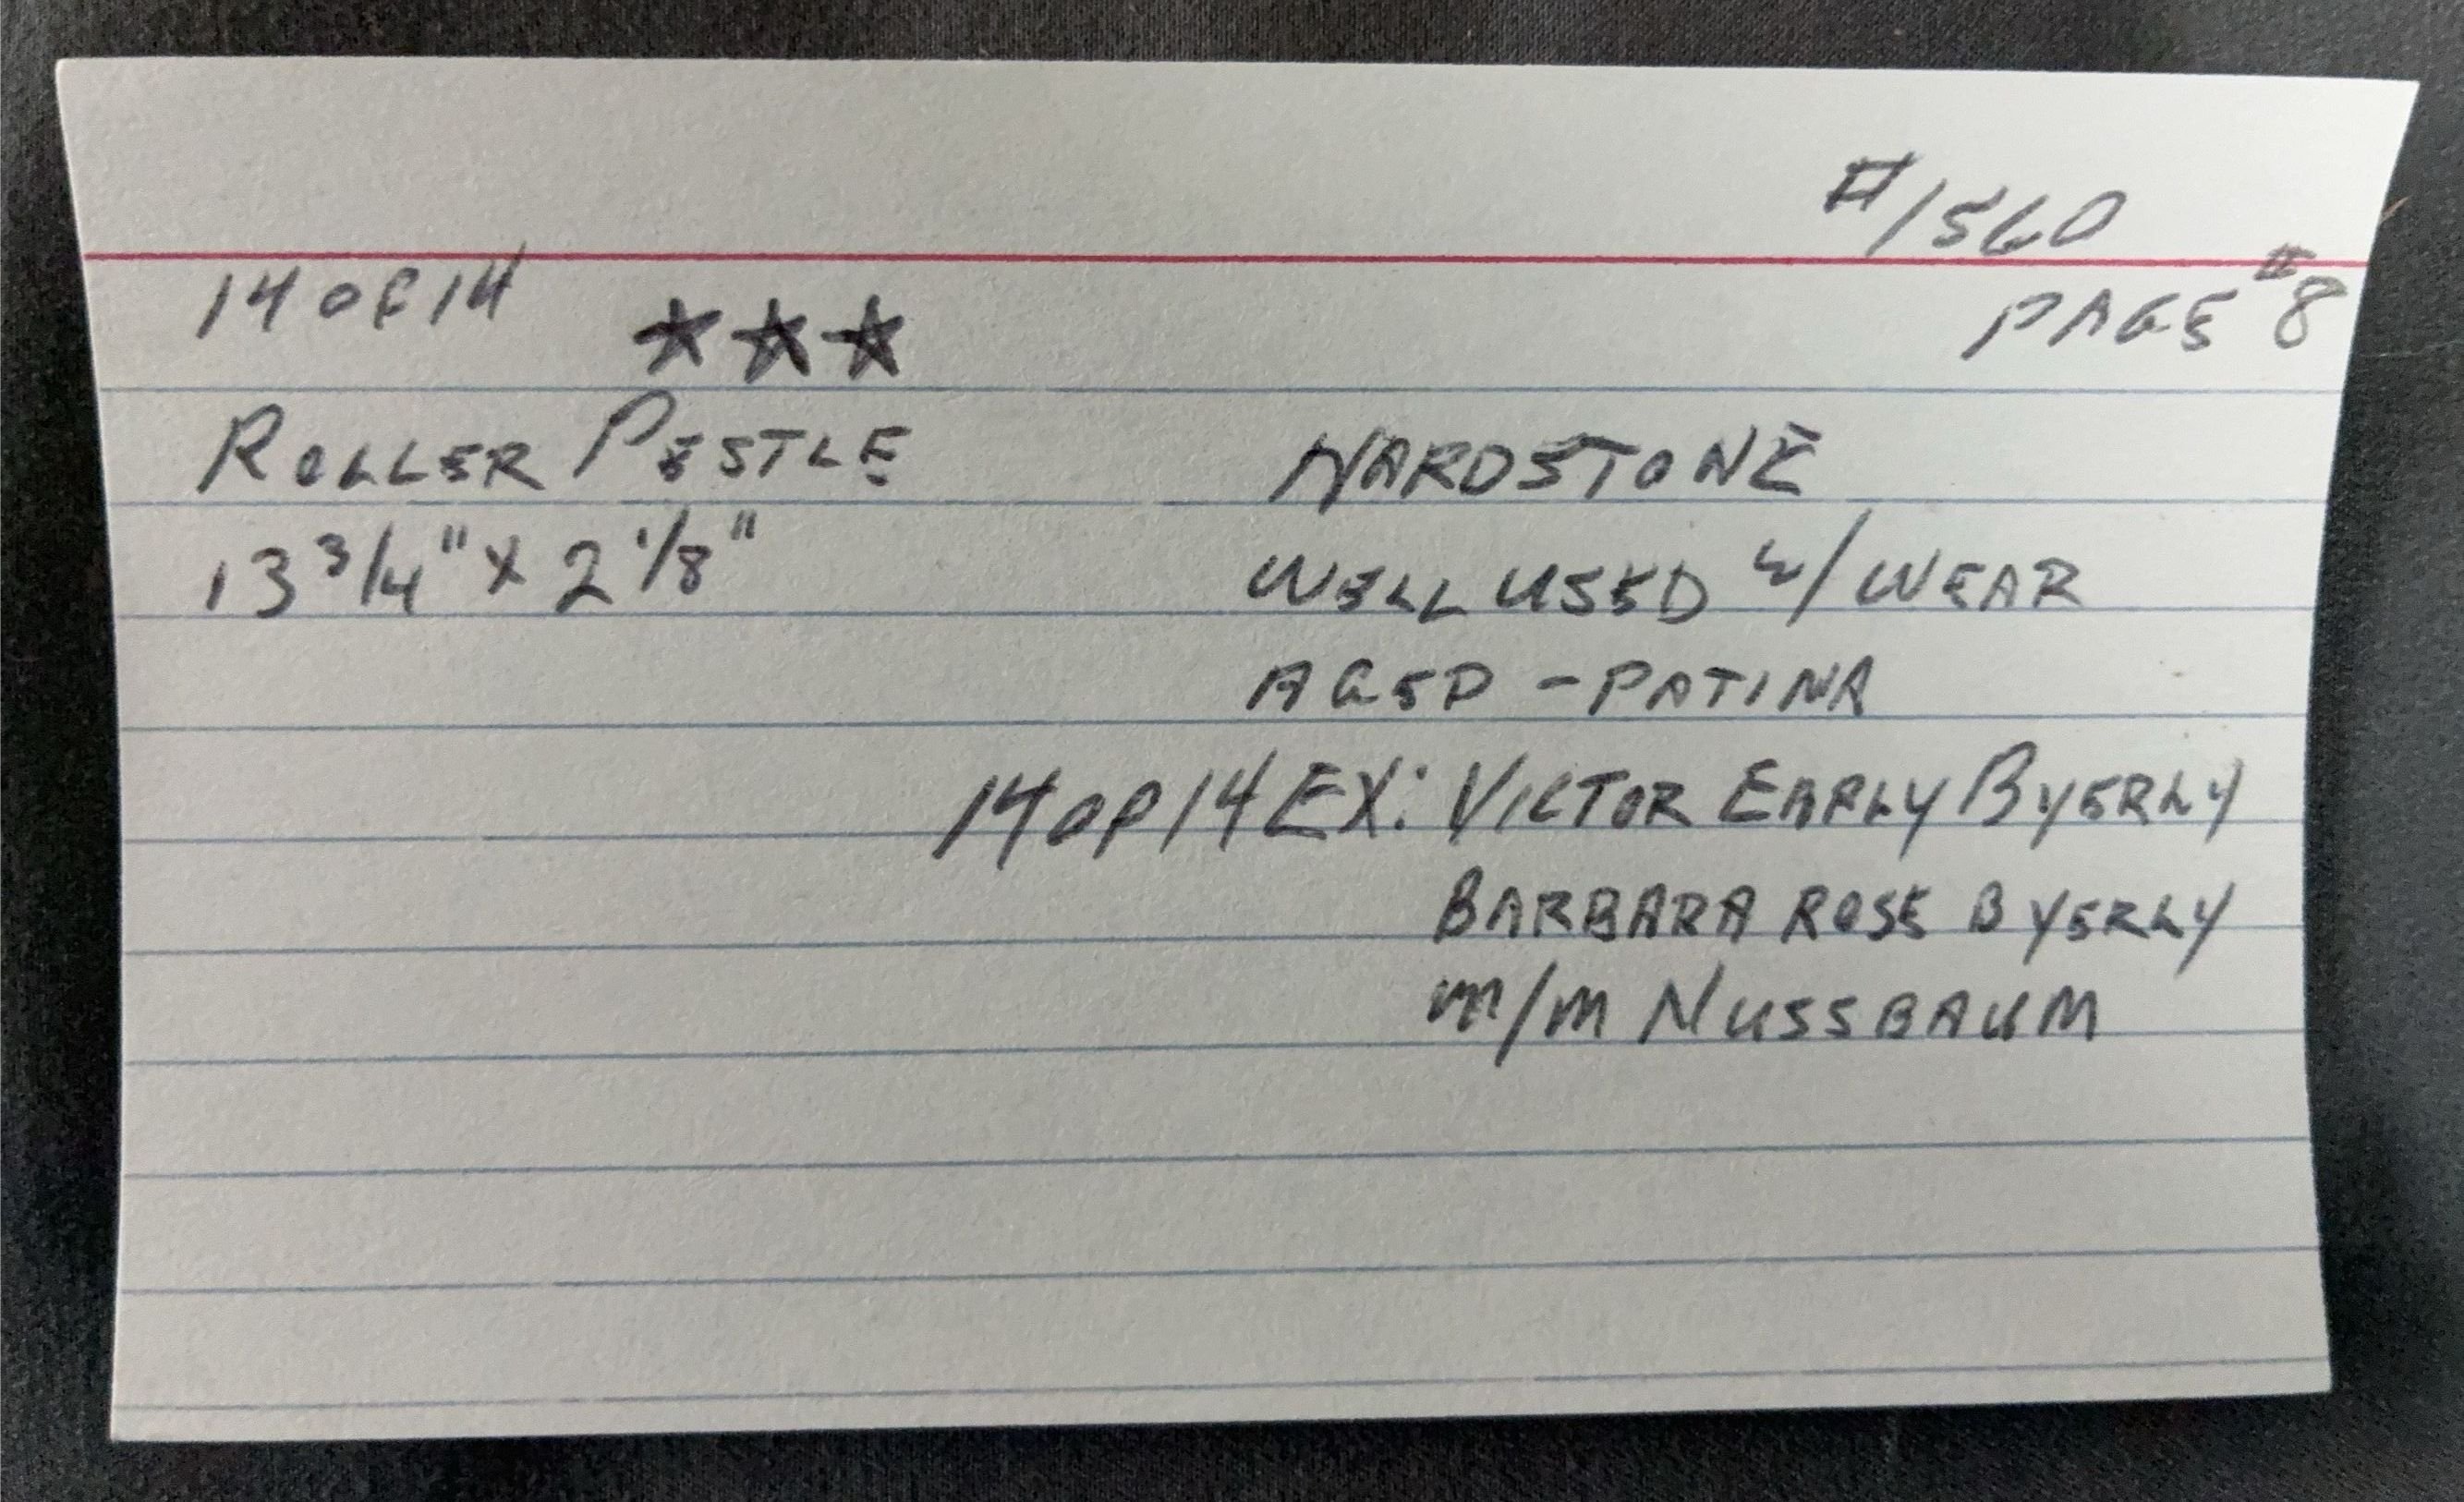 #1560
14 OF 14 ★★★ PAGE #8
ROLLER PESTLE HARDSTONE
13 3/4" X 2 1/8" WELL USED W/ WEAR
AGED - PATINA
14 OF 14 EX: VICTOR EARLY BYERLY
BARBARA ROSE BYERLY
M/M NUSSBAUM